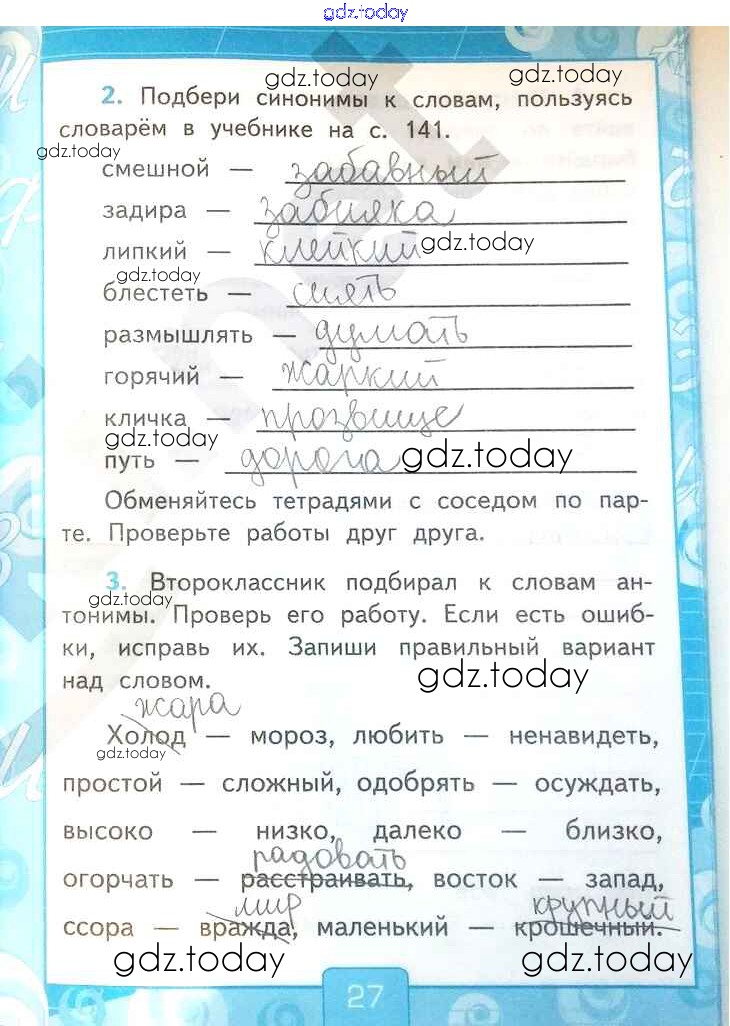 gdz.today
gdz.today gdz.today
2. Подбери синонимы к словам, пользуясь
словарём в учебнике на с. 141.
gdz.today
смешной — забавный
задира — забияка
липкий — клейкий gdz.today
gdz.today
блестеть — сиять
размышлять — думать
горячий — жаркий
кличка — прозвище
gdz.today
путь — дорога gdz.today
Обменяйтесь тетрадями с соседом по пар-
те. Проверьте работы друг друга.
3. Второклассник подбирал к словам ан-
gdz.today
тонимы. Проверь его работу. Если есть ошиб-
ки, исправь их. Запиши правильный вариант
над словом. gdz.today
жара
Холод — мороз, любить — ненавидеть,
gdz.today
простой — сложный, одобрять — осуждать,
высоко — низко, далеко — близко,
радовать
огорчать — расстраивать, восток — запад,
мир крупный
ссора — вражда, маленький — крошечный.
gdz.today gdz.today
27